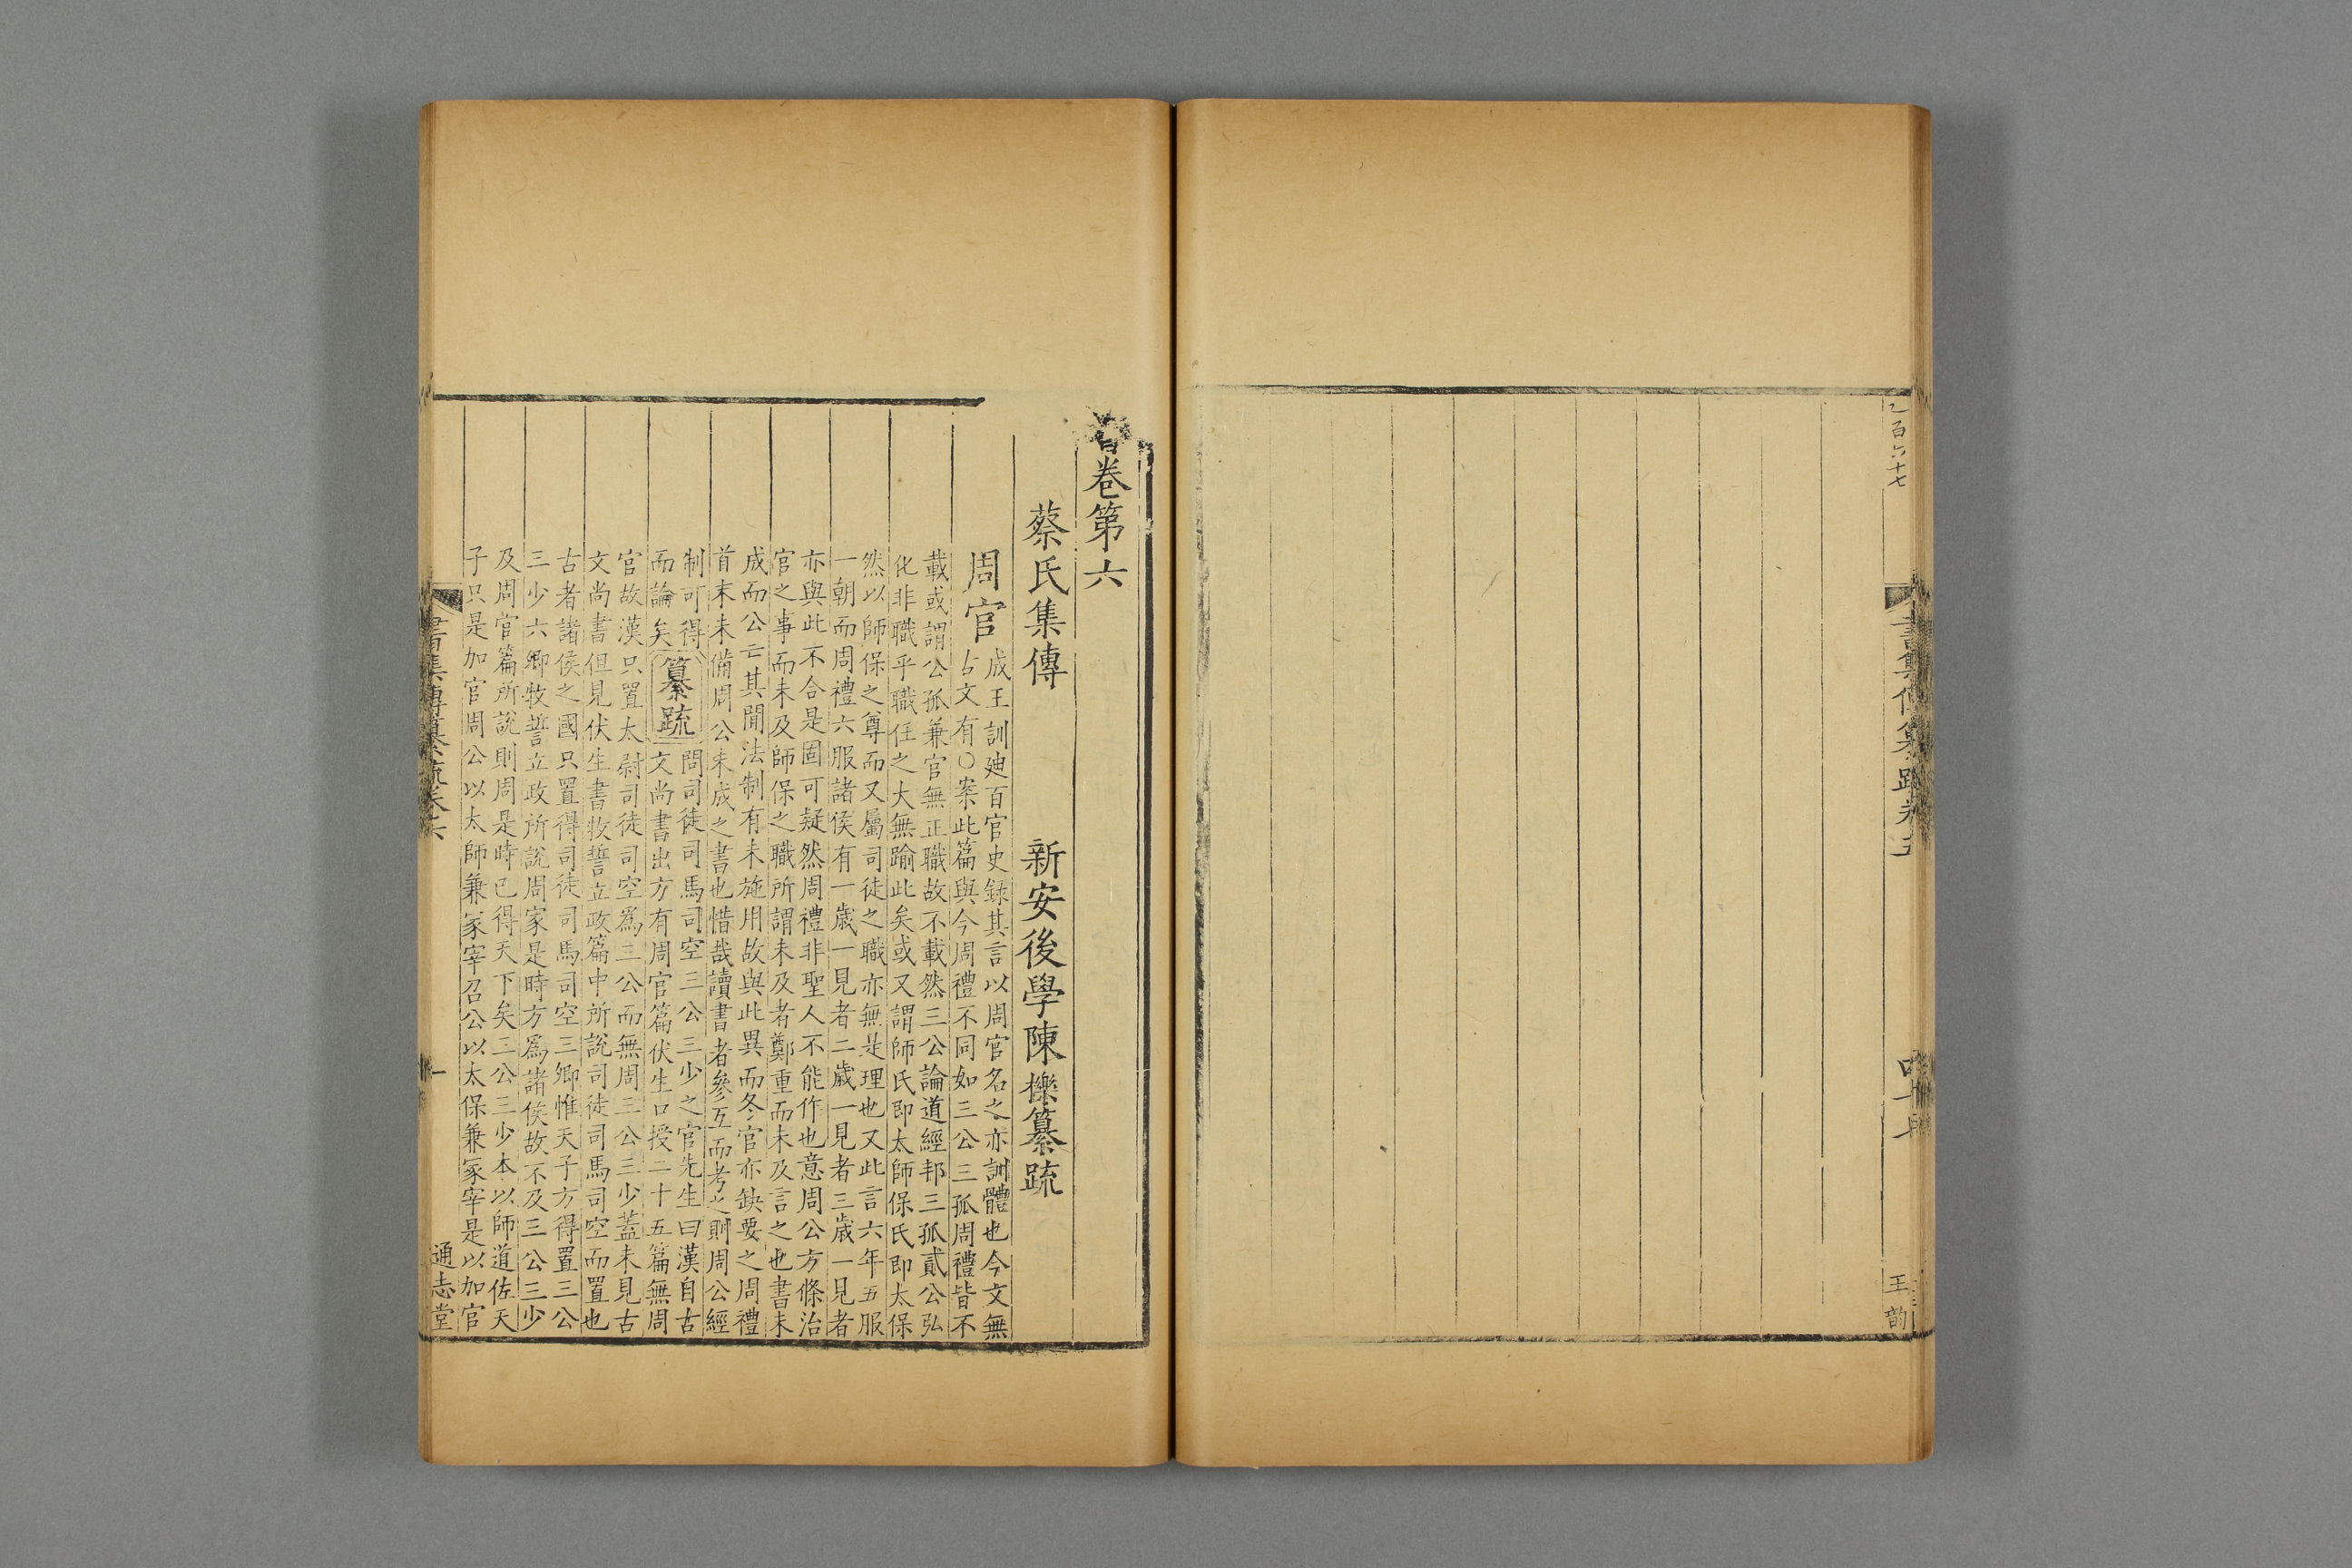 乙百六十七
書集傳纂疏卷五
王韵
書卷第六
蔡氏集傳　新安後學陳櫟纂疏
周官
成王訓廸百官史錄其言以周官名之亦訓體也今文無
古文有○案此篇與今周禮不同如三公三孤周禮皆不
載或謂公孤兼官無正職故不載然三公論道經邦三孤貳公弘
化非職乎職任之大無踰此矣或又謂師氏即太師保氏即太保
然以師保之尊而又屬司徒之職亦無是理也又此言六年五服
一朝而周禮六服諸侯有一歲一見者二歲一見者三歲一見者
亦與此不合是固可疑然周禮非聖人不能作也意周公方條治
官之事而未及師保之職所謂未及者鄭重而未及言之也書未
成而公亡其間法制有未施用故與此異而冬官亦缺要之周禮
首末未備周公未成之書也惜哉讀書者參互而考之則周公經
制可得
而論矣
纂疏
問司徒司馬司空三公三少之官先生曰漢自古
文尚書出方有周官篇伏生口授二十五篇無周
官故漢只置太尉司徒司空爲三公而無周三公三少蓋未見古
文尚書但見伏生書牧誓立政篇中所說司徒司馬司空而置也
古者諸侯之國只置得司徒司馬司空三卿惟天子方得置三公
三少六卿牧誓立政所說周家是時方爲諸侯故不及三公三少
及周官篇所說則周是時已得天下矣三公三少本以師道佐天
子只是加官周公以太師兼冢宰召公以太保兼冢宰是以加官
書集傳纂疏卷六
一
通志堂